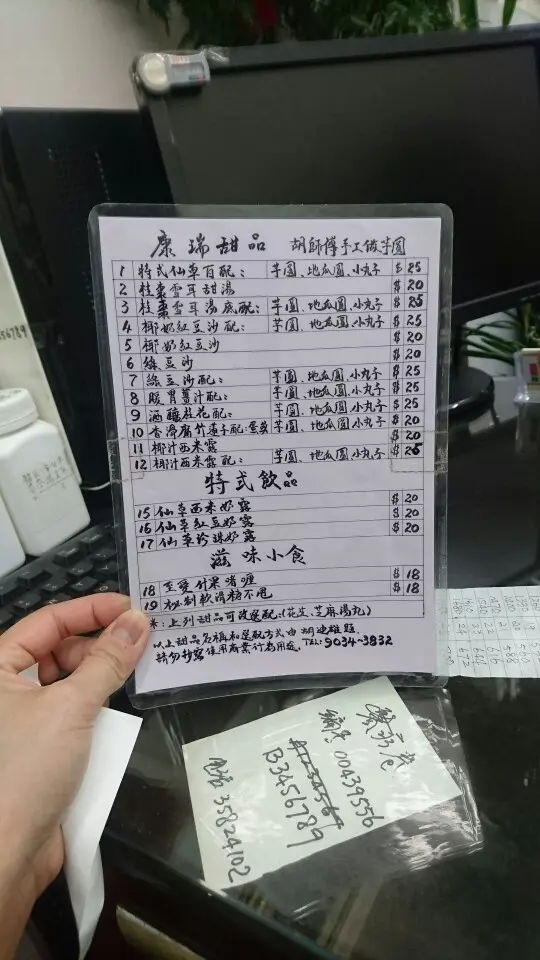 康瑞甜品 胡師傅手工做芋圓
1 特式仙草百配: 芋圓、地瓜圓、小丸子 $25
2 桂棗雪耳甜湯 $20
3 桂棗雪耳湯底配: 芋圓、地瓜圓、小丸子 $25
4 椰奶紅豆沙配: 芋圓、地瓜圓、小丸子 $25
5 椰奶紅豆沙 $20
6 綠豆沙 $20
7 綠豆沙配: 芋圓、地瓜圓、小丸子 $25
8 暖胃薑汁配: 芋圓、地瓜圓、小丸子 $25
9 酒釀桂花配: 芋圓、地瓜圓、小丸子 $25
10 香滑腐竹蓮子配: 芋圓、地瓜圓、小丸子 $25
11 椰汁西米露 $20
12 椰汁西米露配: 芋圓、地瓜圓、小丸子 $25
特式飲品
15 仙草西米奶露 $20
16 仙草紅豆奶露 $20
17 仙草珍珠奶露 $20
滋味小食
18 至愛什果啫喱 $18
19 秘制軟滑糖不甩 $18
*:上列甜品可改選配:(花生、芝麻湯丸)
以上甜品名稱和選配方式由胡
請勿抄錄使用商業行為用途。TEL:9034-3832
編号 00439556
A1234567
B3456789
電話 35824102